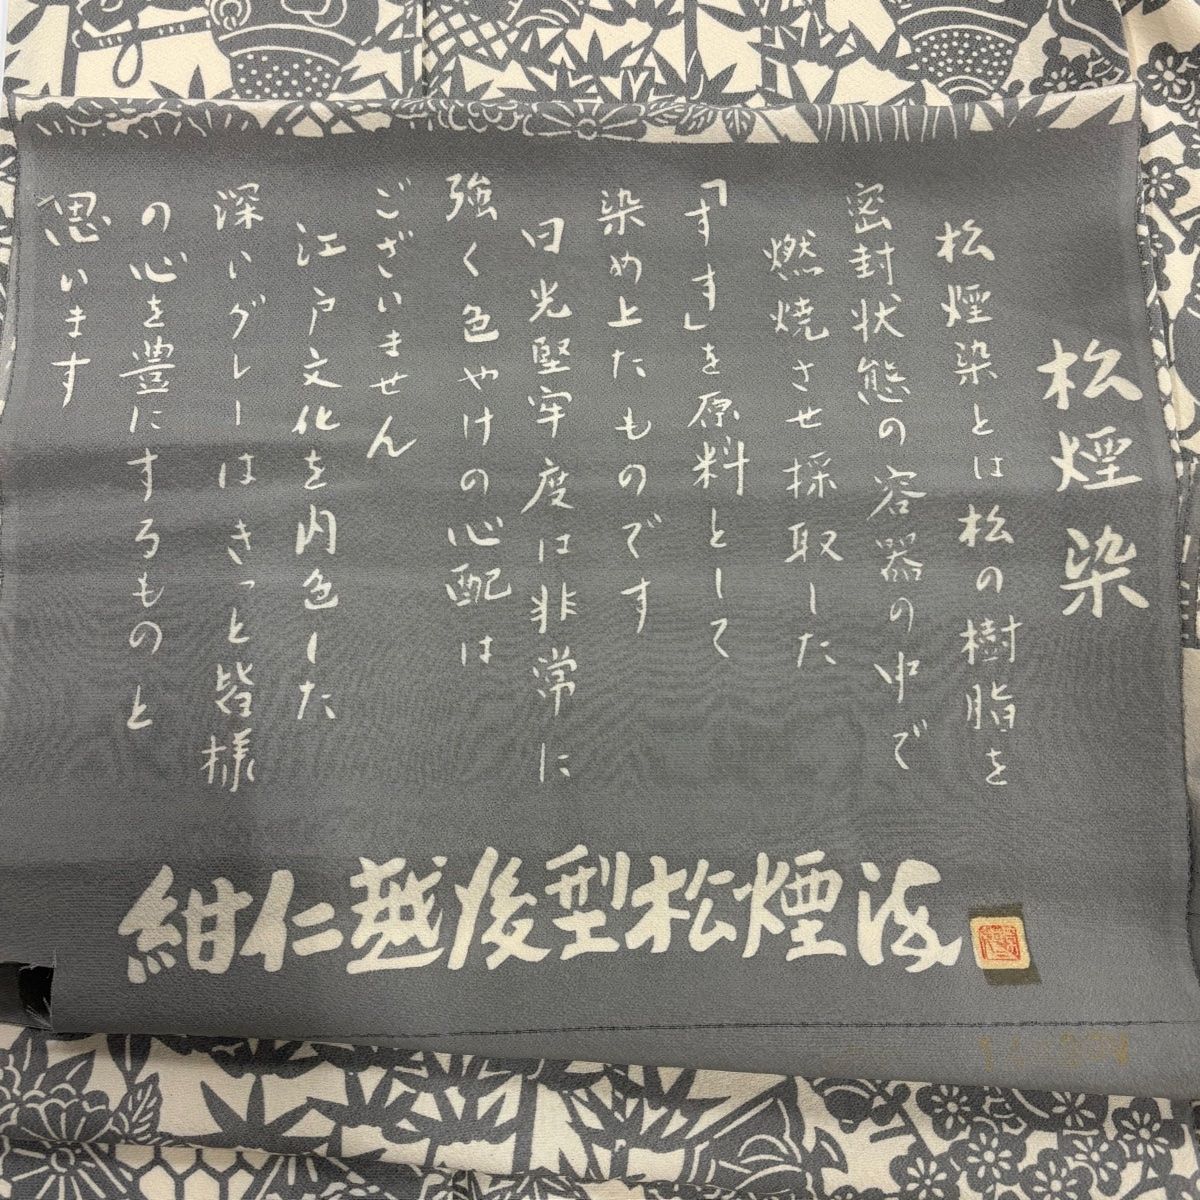 松煙染
松煙染とは松の樹脂を
密封状態の容器の中で
燃焼させ採取した
「すす」を原料として
染め上たものです
日光堅牢度は非常に
強く色やけの心配は
ございません
江戸文化を内色した
深いグレーはきっと皆様
の心を豊にするものと
思います
紺仁越後型松煙染